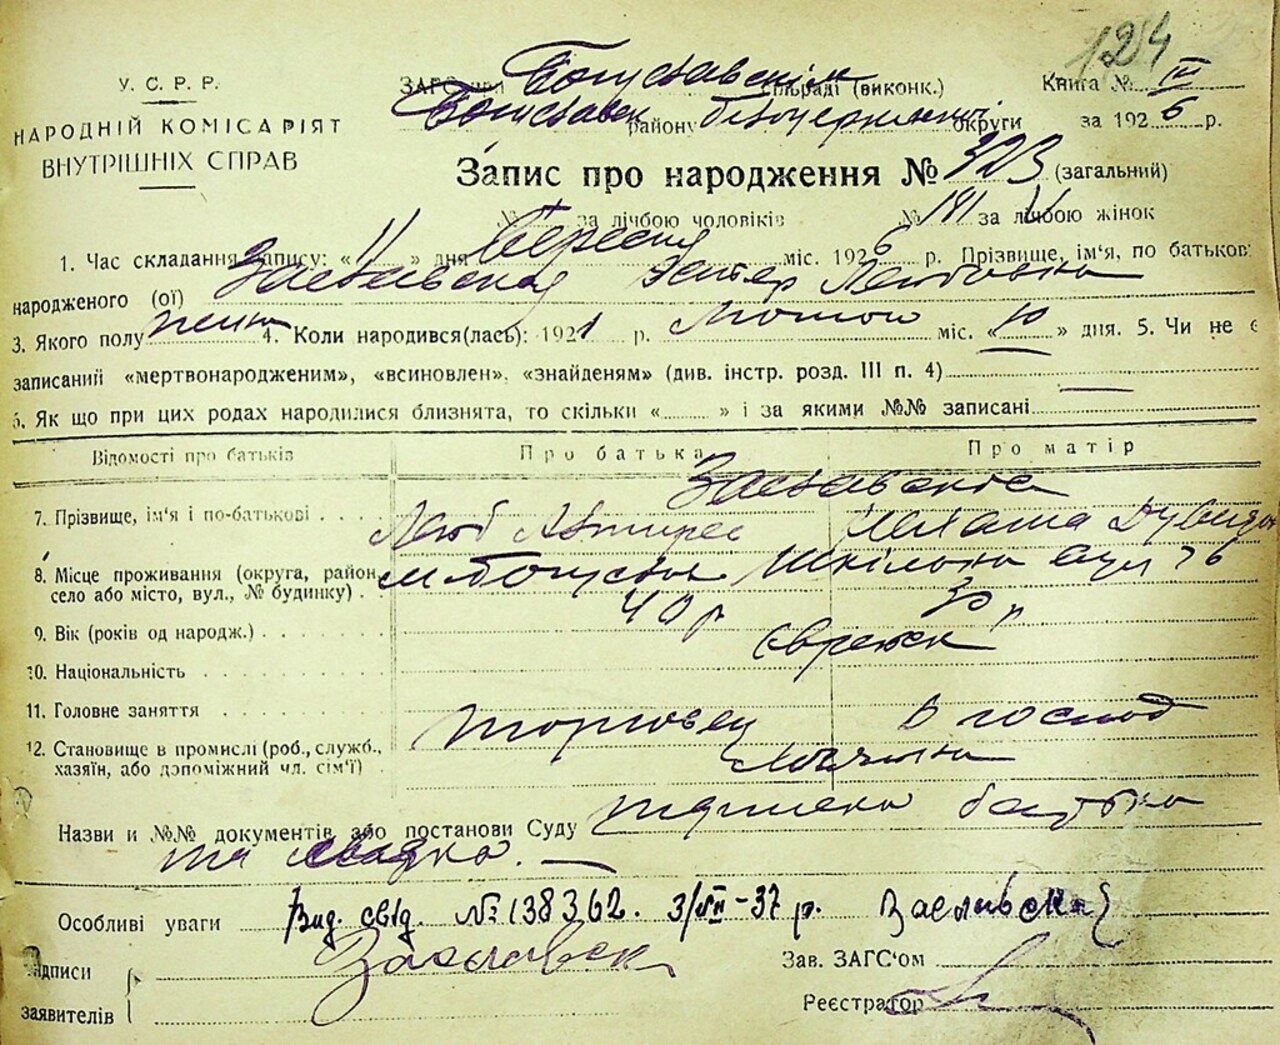 124
У. С. Р. Р.
НАРОДНІЙ КОМІСАРІЯТ
ВНУТРІШНІХ СПРАВ
ЗАГС при Богуславскім сільраді (виконк.)
Богуславськ району білоцерківської округи
Книга № III
за 1926 р.
Запис про народження № 323 (загальний)
№ за лічбою чоловіків № 141 за лічбою жінок
1. Час складання запису: «11» дня вересня міс. 1926 р. Прізвище, ім'я, по батьков
народженого (ої) Заславская Эстер Лейбовна
3. Якого полу жіноч 4. Коли народився(лась): 1921 р. Лютого міс. «10» дня. 5. Чи не є
записаний «мертвонародженим», «всиновлен», «знайденям» (див. інстр. розд. III п. 4)
6. Як що при цих родах народилися близнята, то скільки « » і за якими №№ записані
Відомості про батьків Про батька Про матір
Заславские
7. Прізвище, ім'я і по-батькові Лейб
8. Місце проживання (округа, район, село або місто, вул., № будинку) м. Богуслав Шкільна вул 76
9. Вік (років од народж.) 40 р 30 р
10. Національність Єврейск
11. Головне заняття Торговец в господ
12. Становище в промислі (роб., служб.,
хазяїн, або допоміжний чл. сім'ї)
Назви и №№ документів або постанови Суду батька
та свідка.
Особливі уваги Вид. свід. № 138362. 3/VII-37 р. Заславская
Підписи
заявителів Заславск
Зав. ЗАГС'ом
Реєстратор